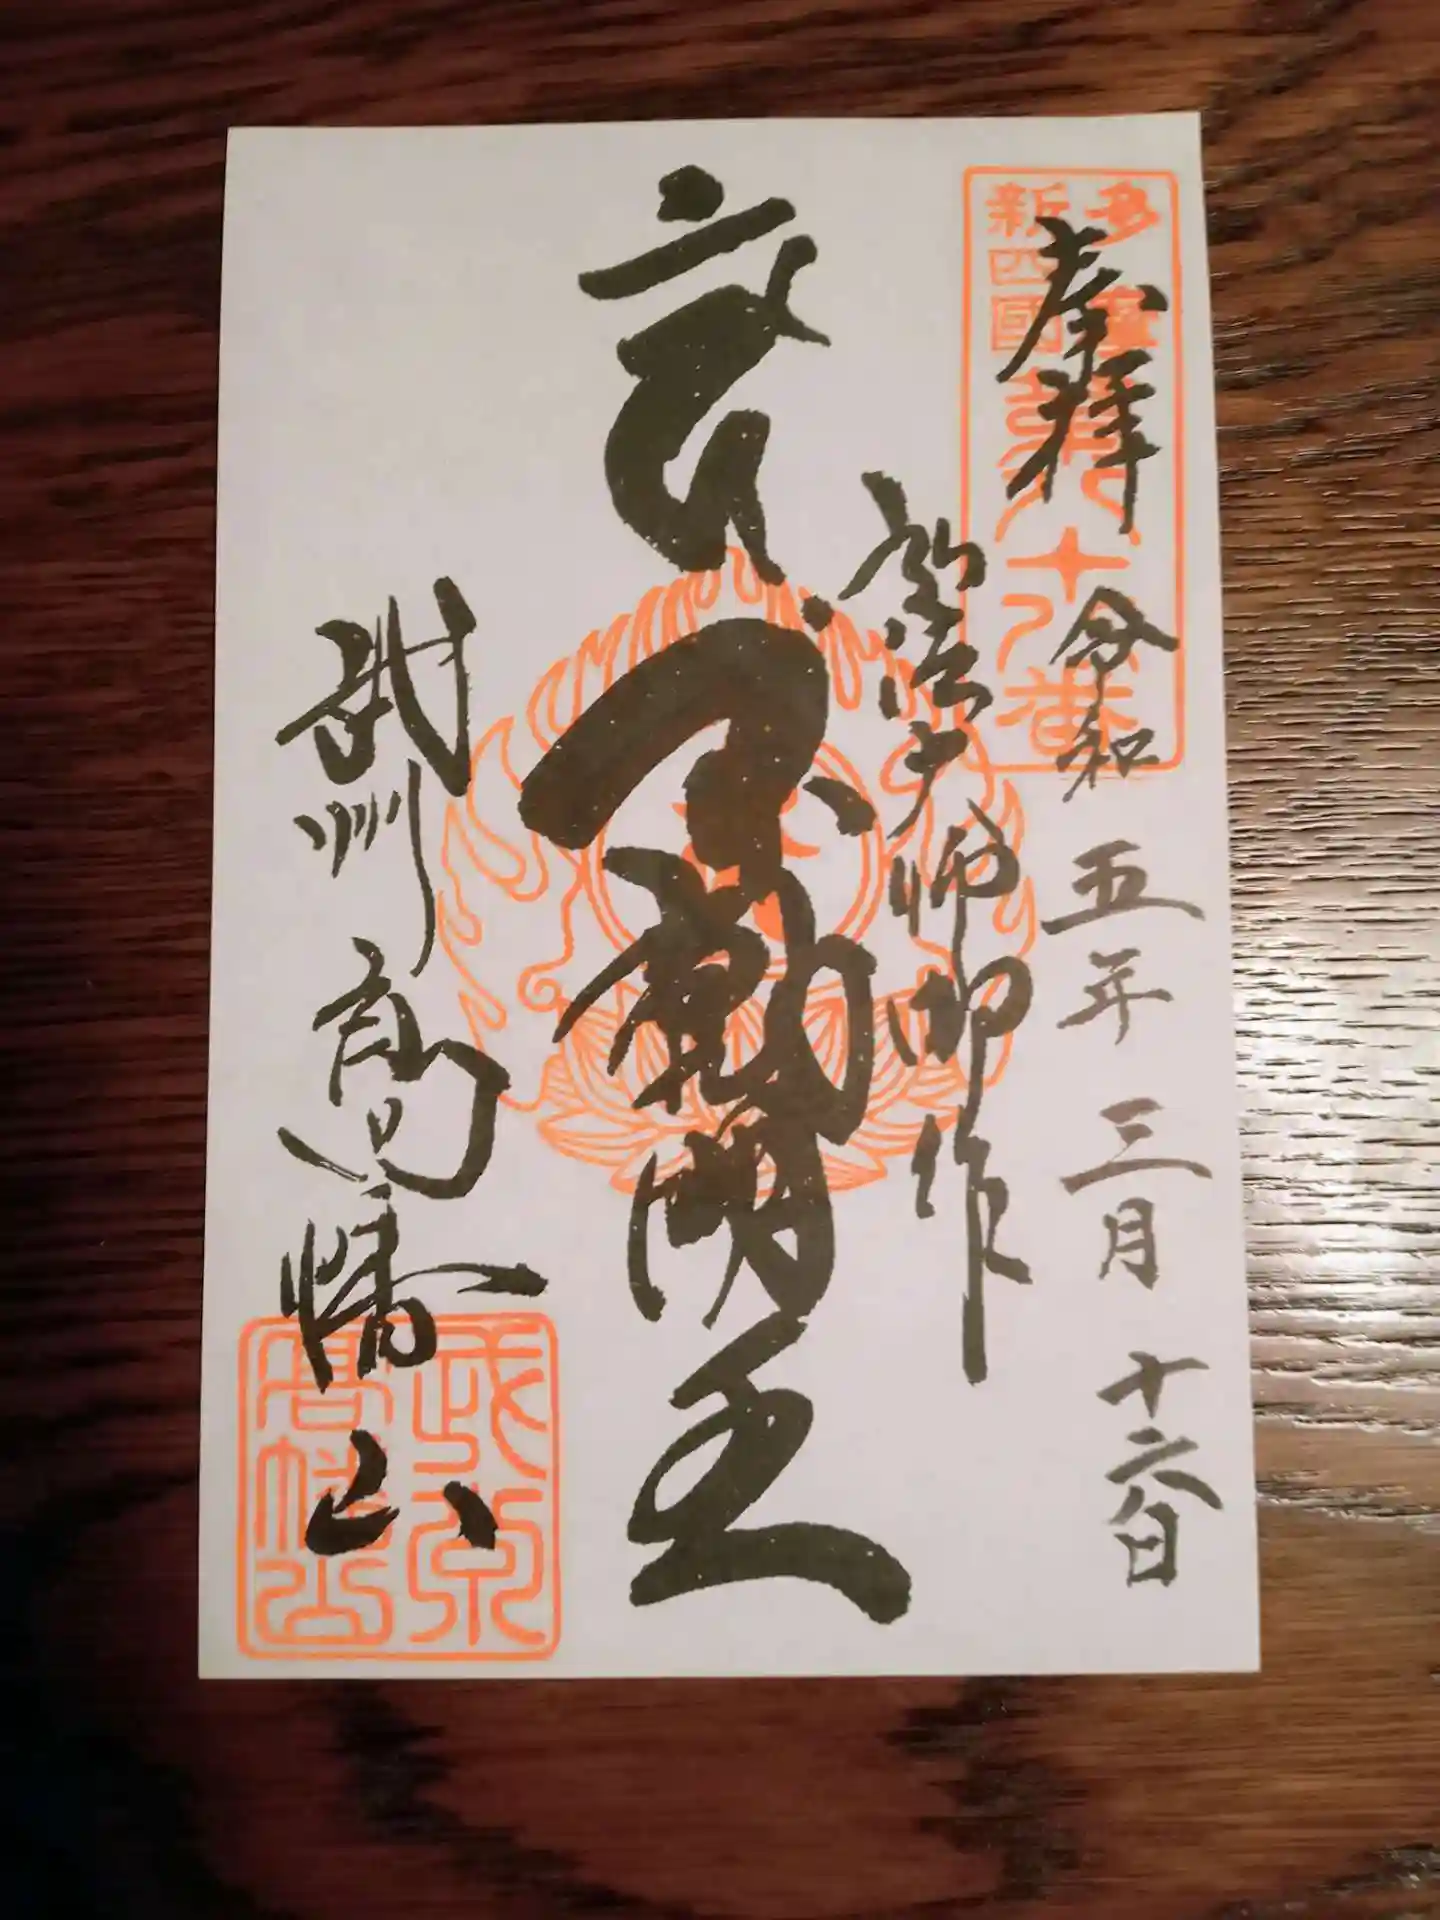 奉拝
令和五年三月十六日
多摩
新四國
第八十八番
弘法大師御作
不動明王
武州高幡山
武州
高幡山